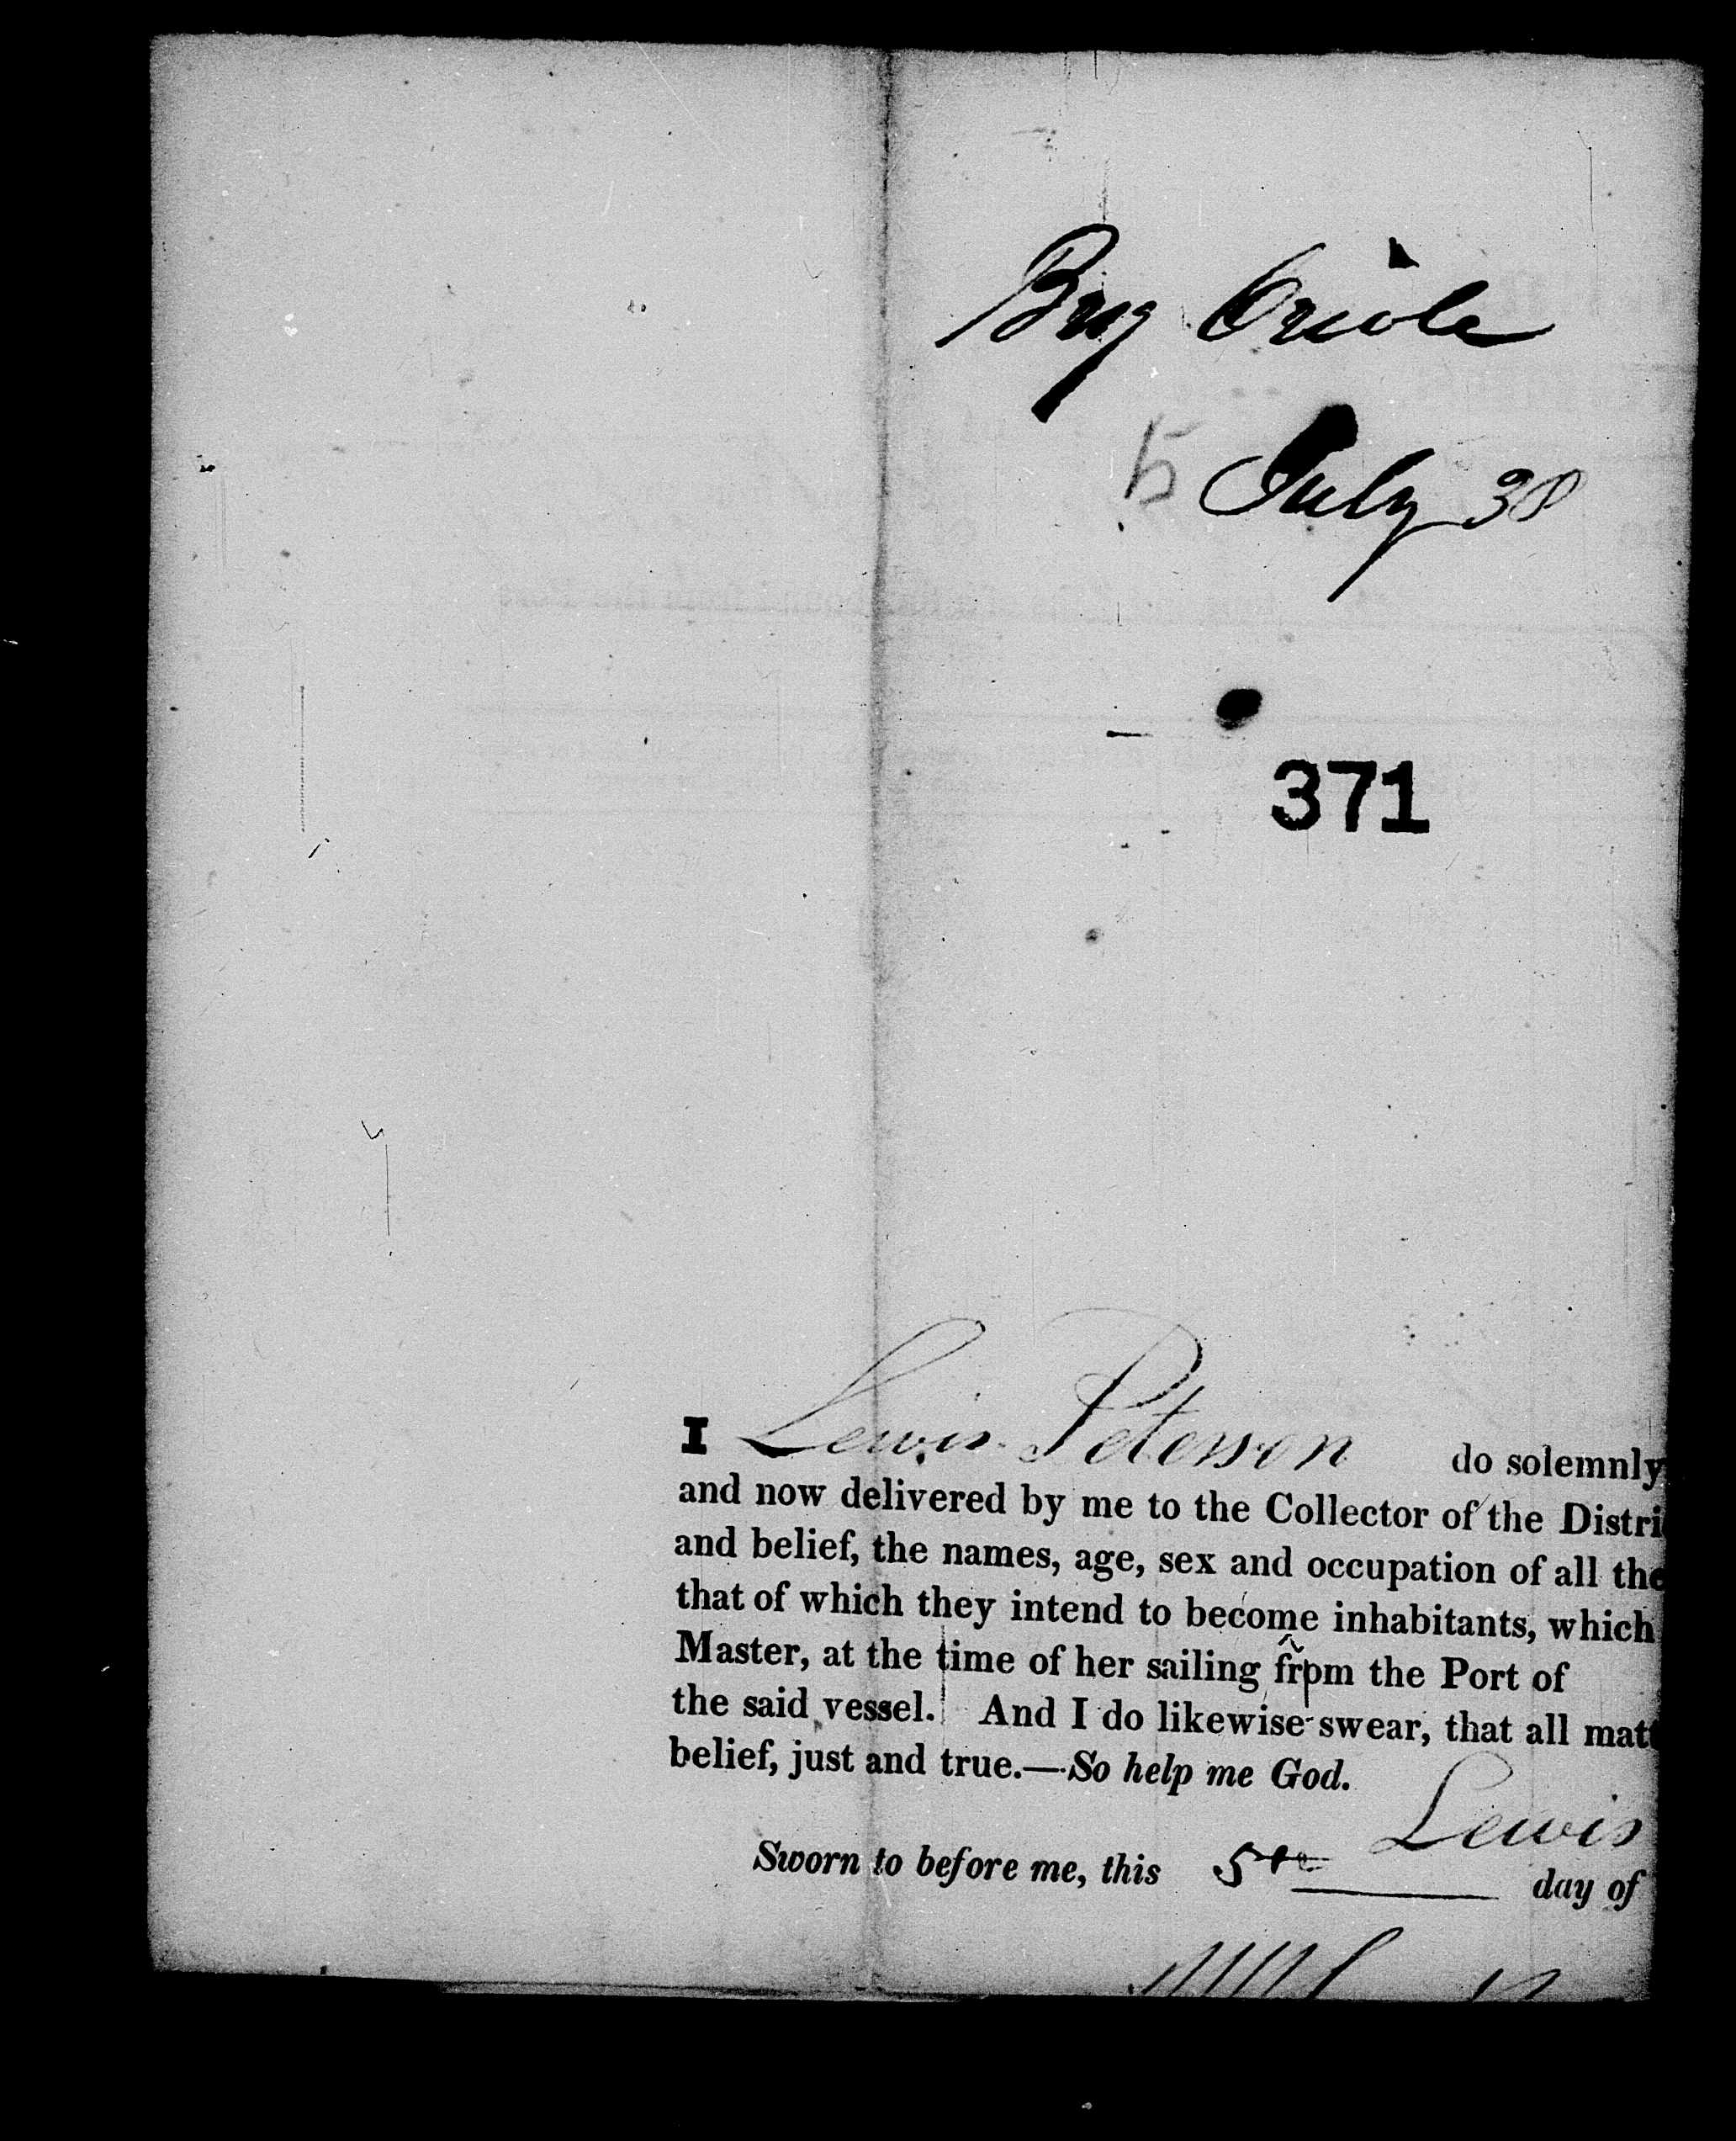 Brig Oriole
5 July 38
371
I Lewis Peterson do solemnly
and now delivered by me to the Collector of the Distri
and belief, the names, age, sex and occupation of all the
that of which they intend to become inhabitants, which
Master, at the time of her sailing from the Port of
the said vessel. And I do likewise swear, that all mat
belief, just and true.—So help me God.
Lewis
Sworn to before me, this 5th day of